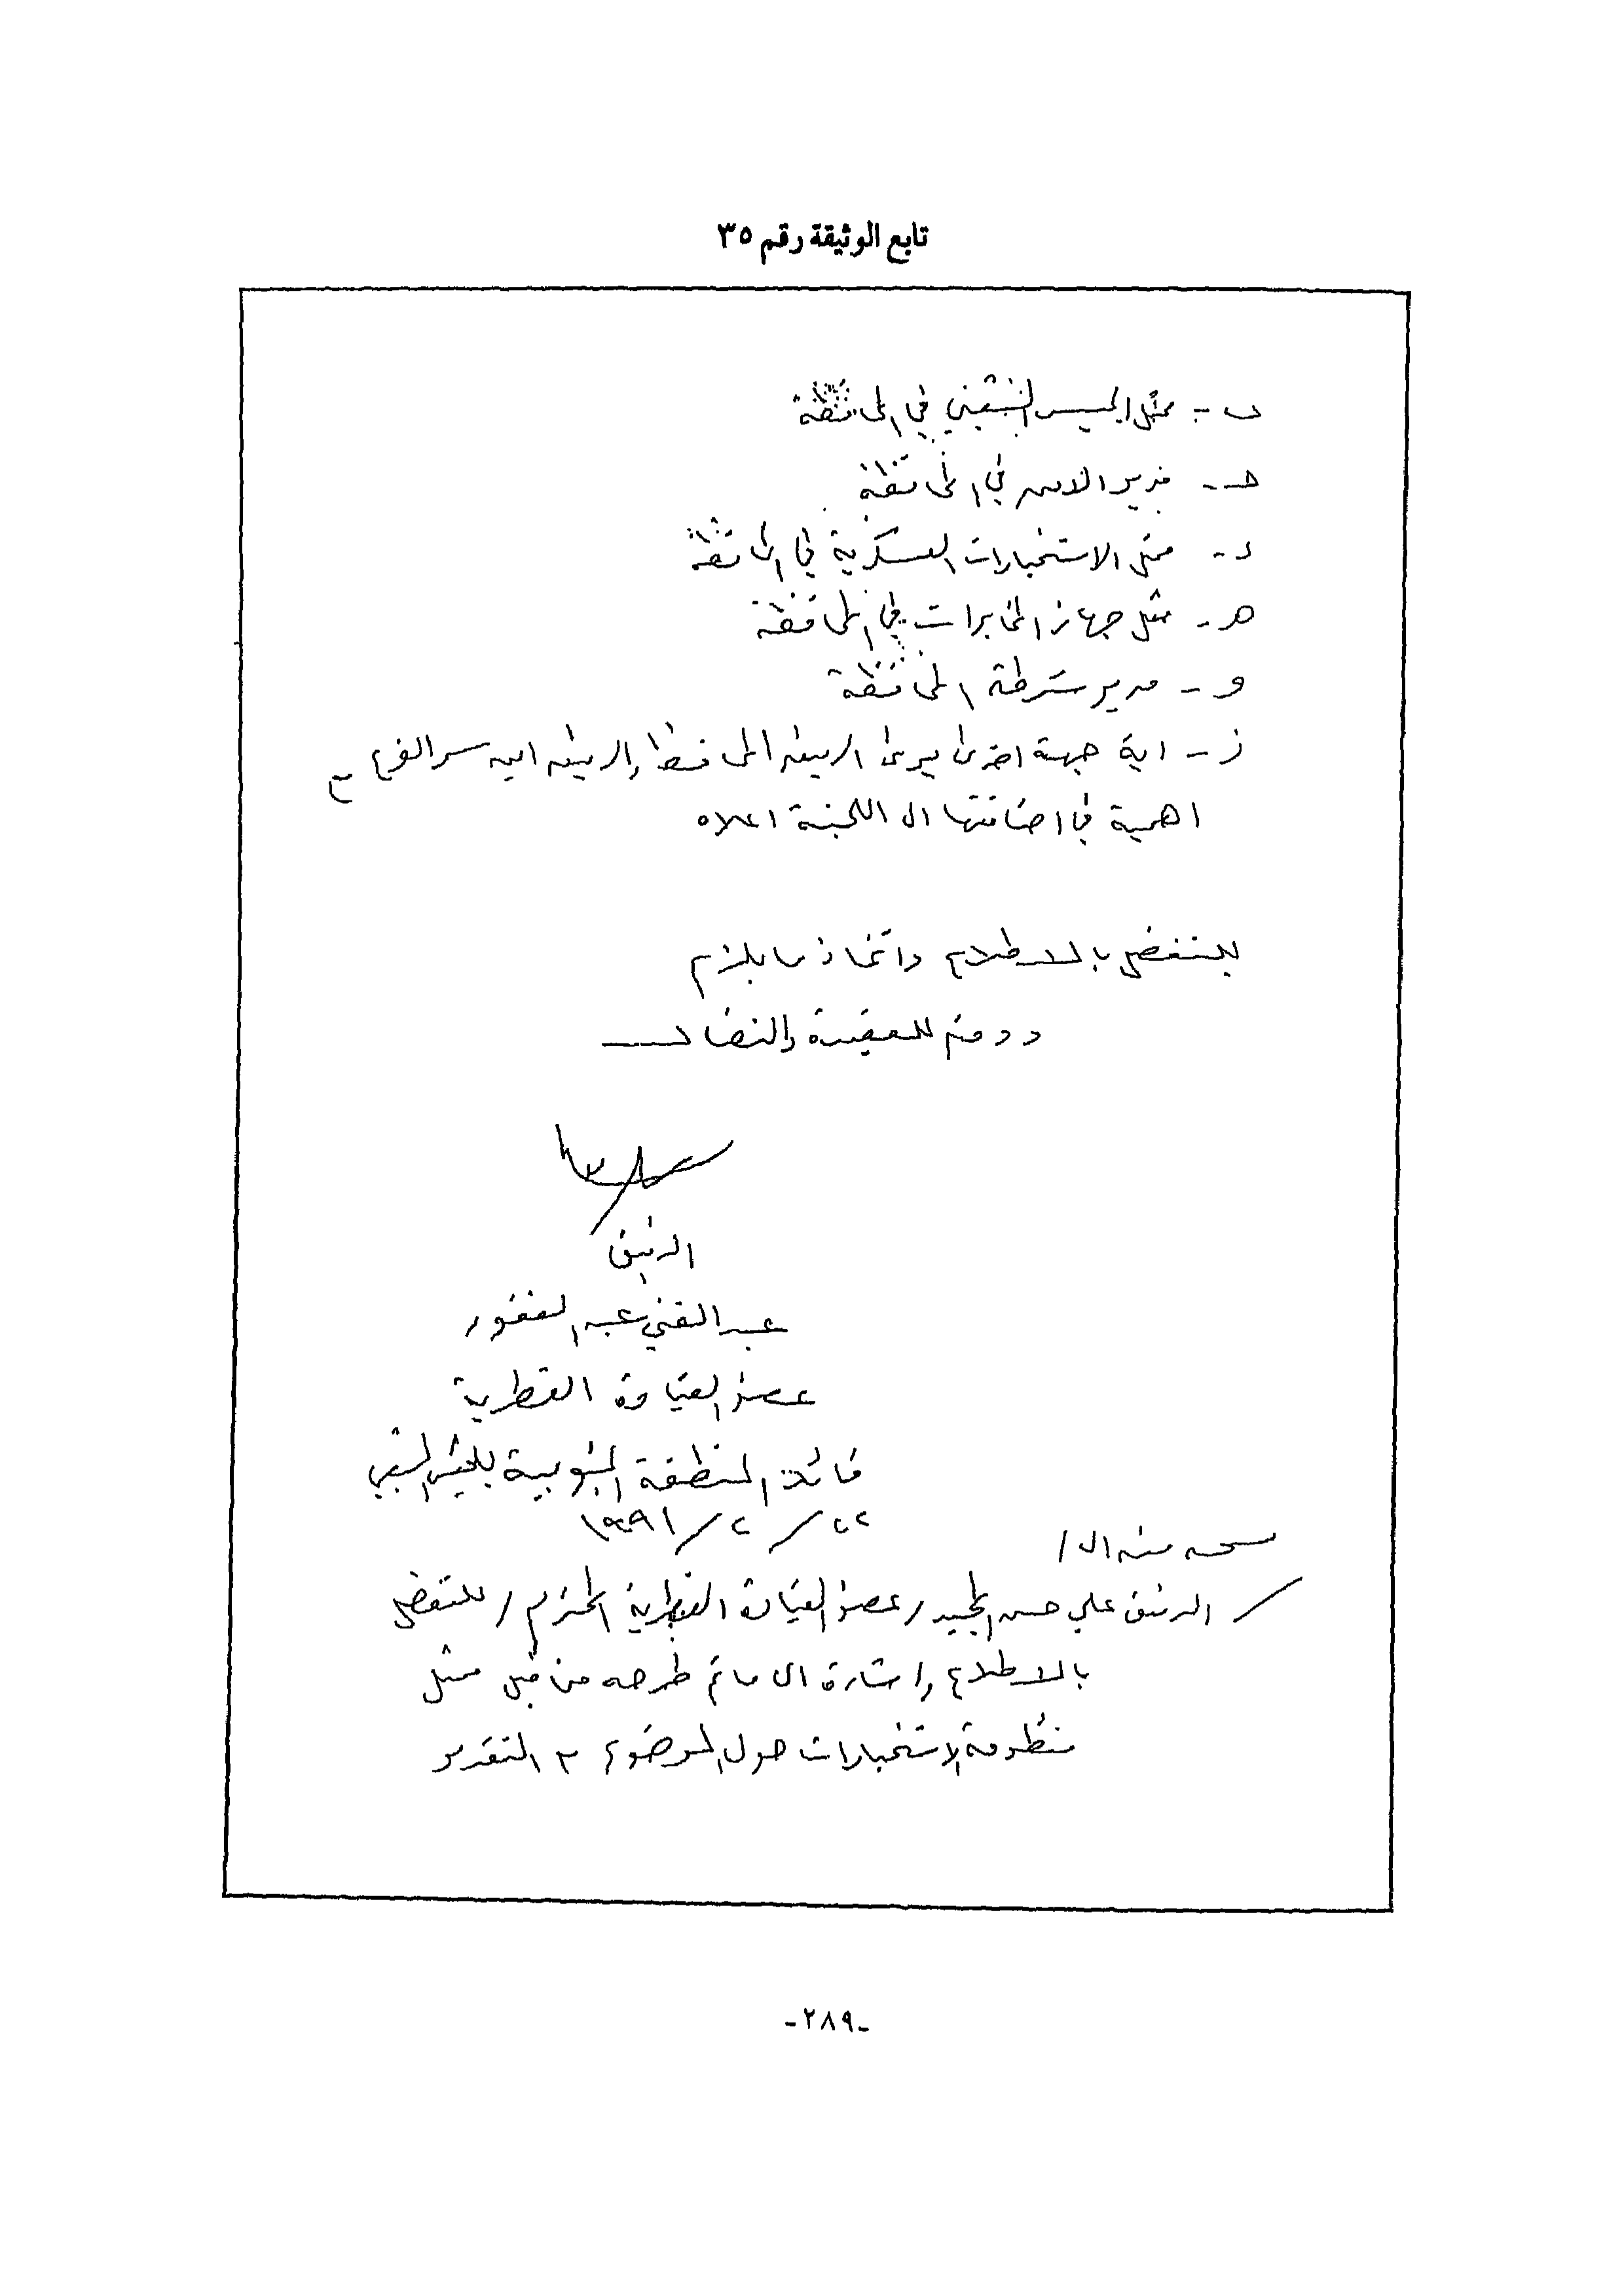 تابع الوثيقة رقم ٣٥
ب - ممثل الجيش الشعبي في المحافظة
جـ - مدير الامن في المحافظة
د - ممثل الاستخبارات العسكرية في المحافظة
هـ - ممثل جهاز المخابرات في المحافظة
و - مدير شرطة المحافظة
ز - اية جهة اخرى يرى الرفيق المحافظ والرفيق امين سر الفرع
اهمية في اضافتها الى اللجنة اعلاه
للتفضل بالاطلاع واتخاذ ما يلزم
ودمتم للعقيدة والنضال
الرفيق
عبد الغني عبد الغفور
عضو القيادة القطرية
قائد المنطقة الجنوبية للجيش الشعبي
٢٢ / ٢ / ١٩٩١
نسخة منه الى /
الرفيق علي حسن المجيد / عضو القيادة القطرية المحترم / للتفضل
بالاطلاع واشارة الى ما تم طرحه من قبل ممثل
منظومة الاستخبارات حول الموضوع مع التقدير
-٢٨٩-